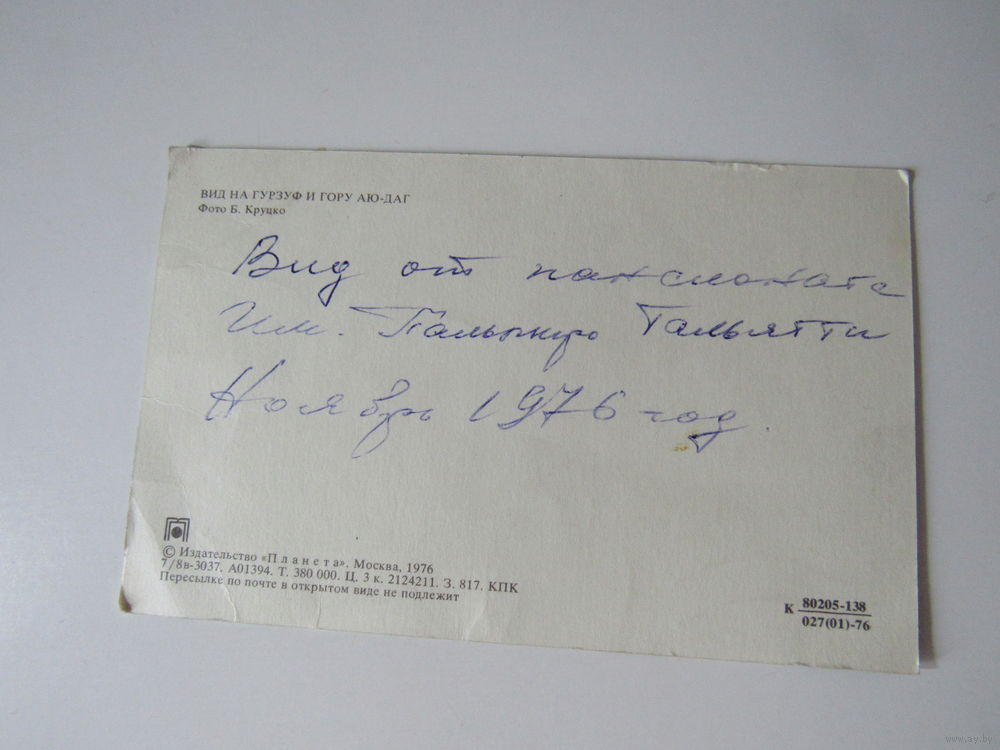 ВИД НА ГУРЗУФ И ГОРУ АЮ-ДАГ
Фото Б. Круцко
Вид от пансионата
Им. Пальмиро Тальятти
Ноябрь 1976 год.
© Издательство «Планета». Москва, 1976
7/8в-3037. А01394. Т. 380 000. Ц. 3 к. 2124211. З. 817. КПК
Пересылке по почте в открытом виде не подлежит
К 80205-138
027(01)-76
www.ay.by